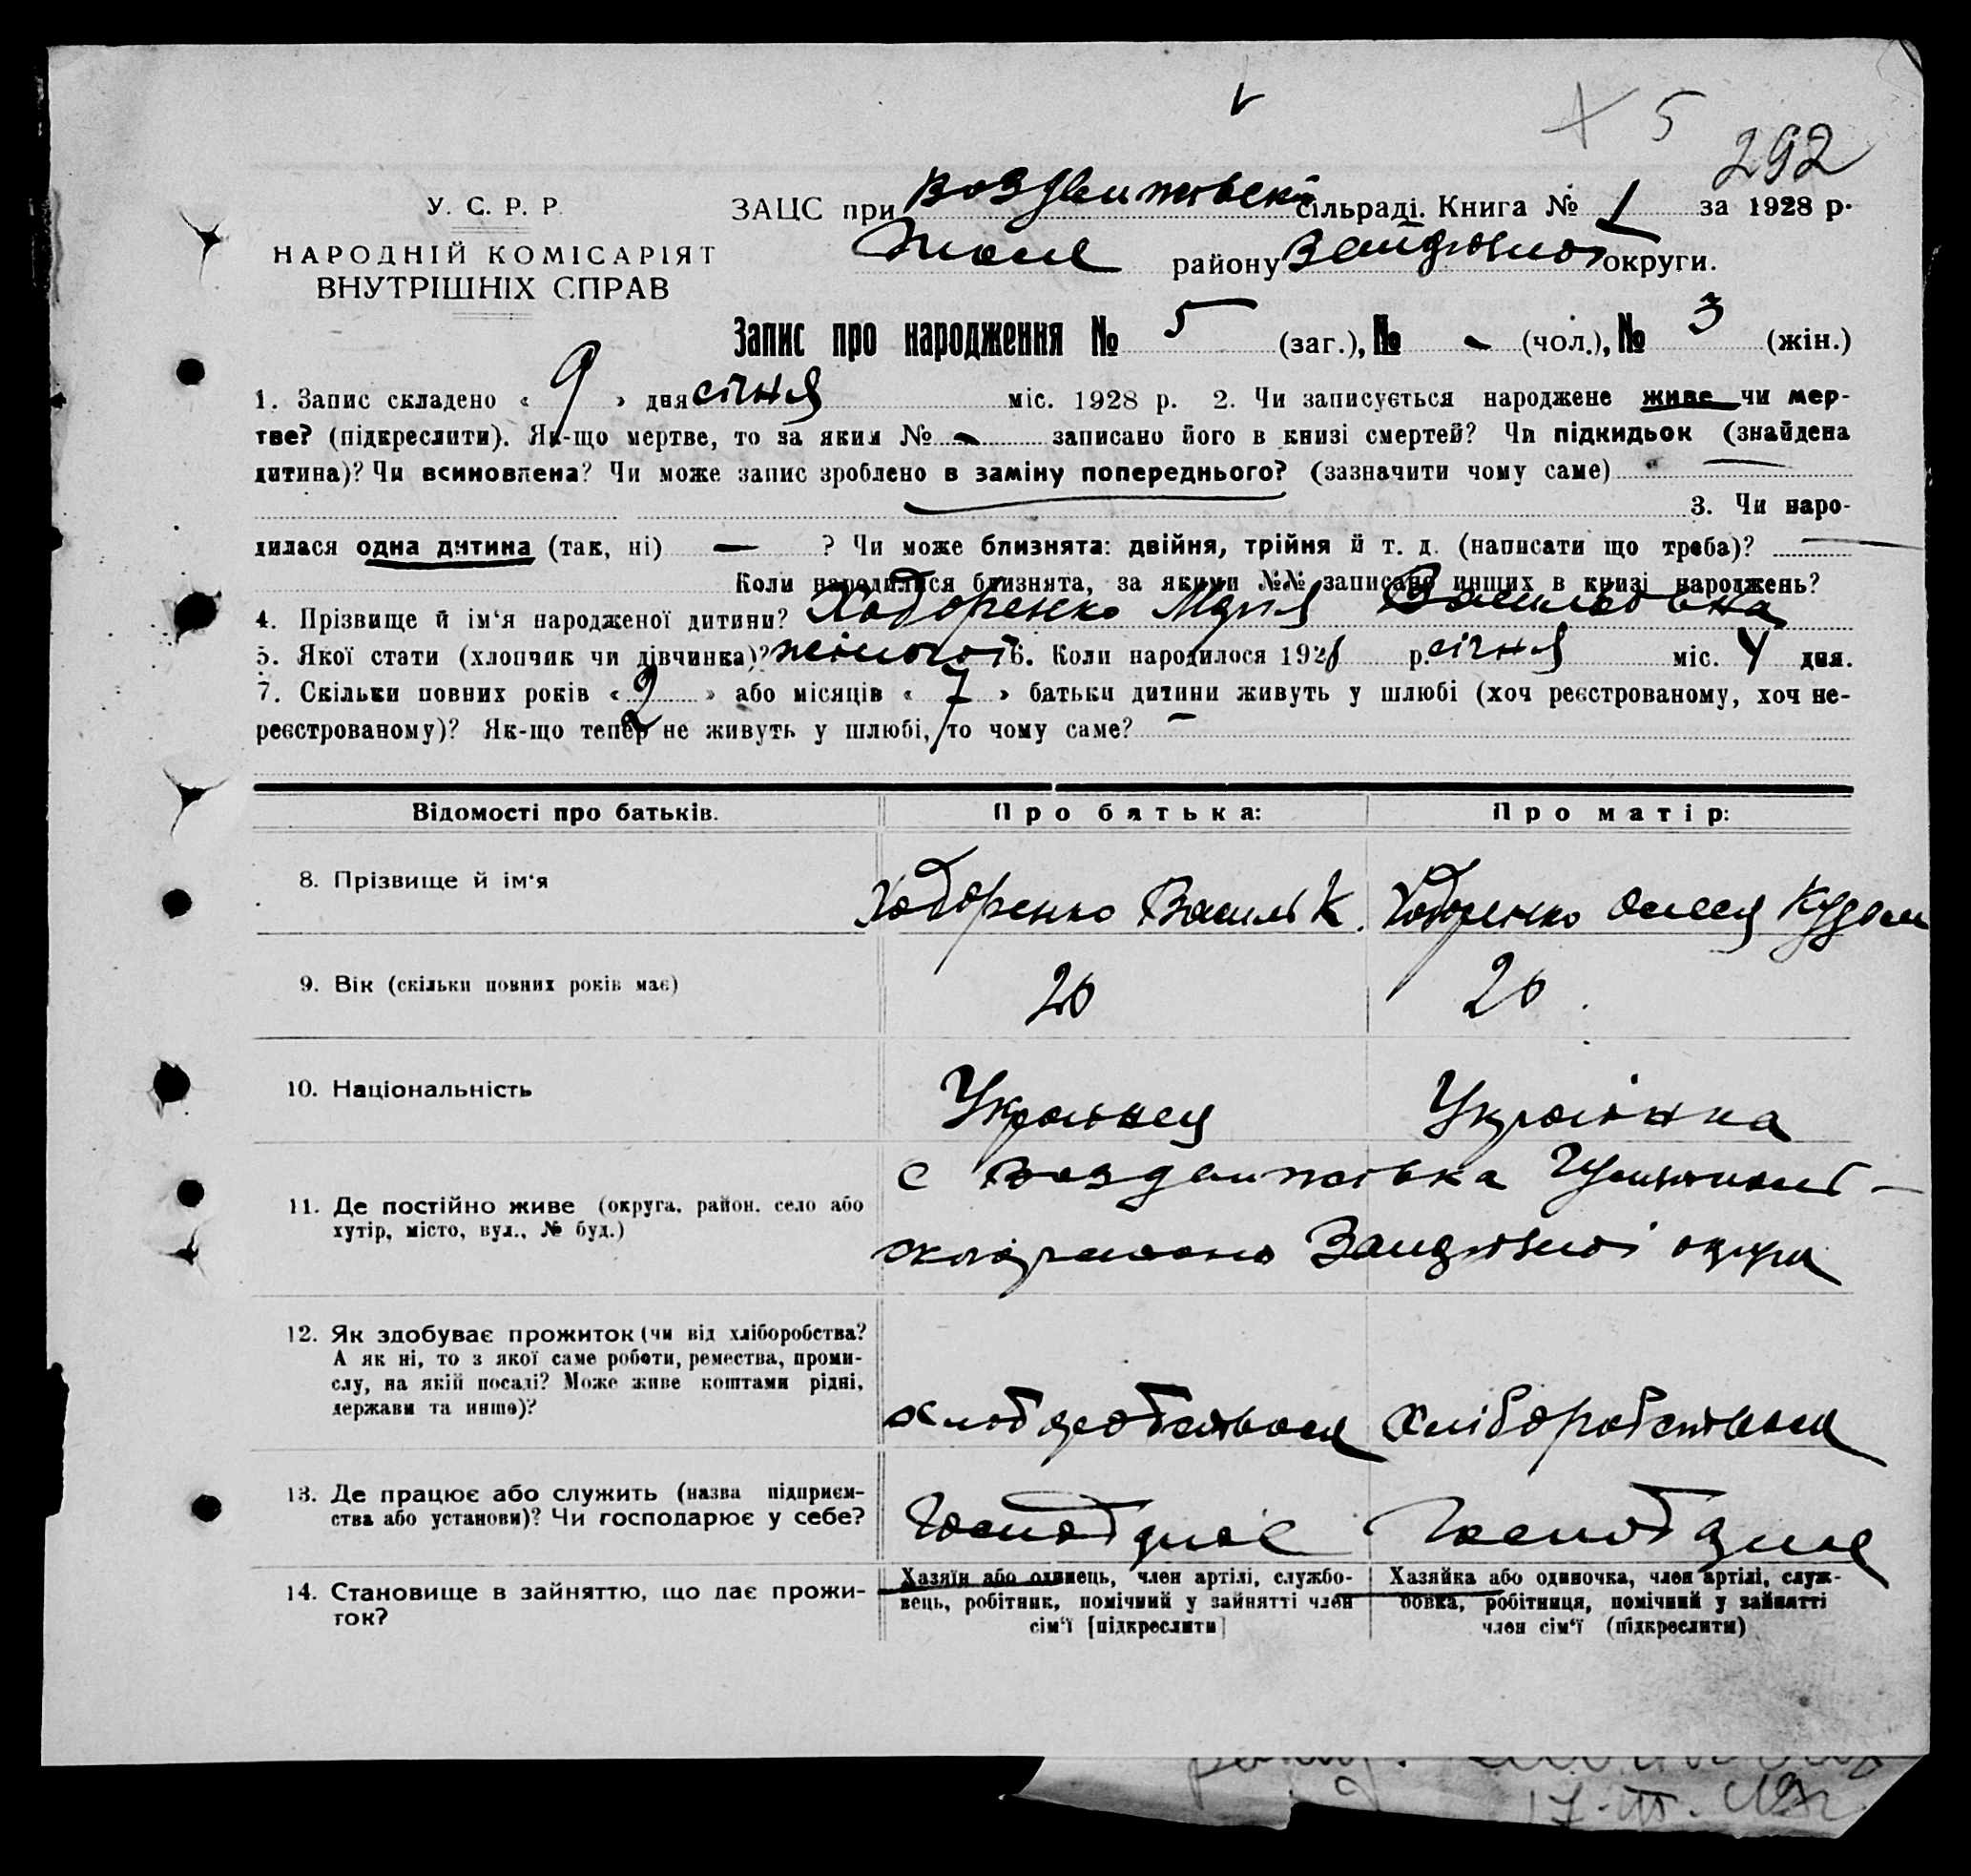 5
292
У. С. Р. Р.
НАРОДНІЙ КОМІСАРІЯТ
ВНУТРІШНІХ СПРАВ
ЗАЦС при Воздвижівскі сільраді. Книга № 1 за 1928 р.
району округи.
Запис про народження № 5 (заг.), № - (чол.), № 3 (жін.)
1. Запис складено « 9 » дня січня міс. 1928 р. 2. Чи записується народжене живе чи мер-
тве? (підкреслити). Як-що мертве, то за яким № - записано його в книзі смертей? Чи підкидьок (знайдена
дитина)? Чи всиновлена? Чи може запис зроблено в заміну попереднього? (зазначити чому саме)
3. Чи наро-
дилася одна дитина (так, ні) — ? Чи може близнята: двійня, трійня й т. д. (написати що треба)? —
Коли народилися близнята, за якими №№ записано инших в книзі народжень?
4. Прізвище й ім'я народженої дитини? Ходоренко Марія Васильовна
5. Якої стати (хлопчик чи дівчинка)? жіночої 6. Коли народилося 1928 р. січня міс. 4 дня.
7. Скільки повних років « 2 » або місяців « 7 » батьки дитини живуть у шлюбі (хоч реєстрованому, хоч не-
реєстрованому)? Як-що тепер не живуть у шлюбі, то чому саме? —
Відомості про батьків. Про батька: Про матір:
8. Прізвище й ім'я Ходоренко Василь К. Ходоренко Олеся
9. Вік (скільки повних років має) 20 20
10. Національність Українец Українка
11. Де постійно живе (округа, район, село або
хутір, місто, вул., № буд.)
с Воздвижівка
округи
12. Як здобуває прожиток (чи від хліборобства?
А як ні, то з якої саме роботи, ремества, проми-
слу, на якій посаді? Може живе коштами рідні,
держави та инше)?
хліборобством Хліборобством
13. Де працює або служить (назва підприєм-
ства або установи)? Чи господарює у себе?
14. Становище в зайняттю, що дає прожи-
ток?
Хазяїн або одинець, член артілі, службо-
вець, робітник, помічний у зайнятті член
сім'ї [підкреслити]
Хазяйка або одиночка, член артілі, служ-
бовка, робітниця, помічний у зайнятті
член сім'ї (підкреслити)